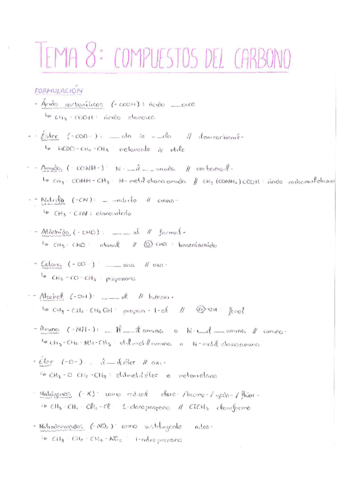 TEMA 8: COMPUESTOS DEL CARBONO
FORMULACIÓN
- Ácidos carboxílicos (-COOH): ácido ___oico
↳ CH3-COOH: ácido etanoico
- Éster (-COO-): ___ato de ___ilo //
↳ HCOO-CH2-CH3 metanoato de etilo
- Amidas (-CONH-): N-___il ___amida //
↳ CH3-CONH-CH3 N-metil etanamida //
- Nitrilo (-CN): ___nitrilo // ciano-
↳ CH3-C≡N: etanonitrilo
- Aldehído (-CHO): ___al // formil-
↳ CH3-CHO etanal // -CHO: benzaldehído
- Cetona (-CO-): ___ona // oxo-
↳ CH3-CO-CH3 propanona
- Alcohol (-OH): ___ol // hidroxi-
↳ CH3-CH2-CH2OH: propan-1-ol // -OH: fenol
- Amina (-NH-): ___il amina o N-___il ___amina // amino-
↳ CH3-CH2-NH-CH3: etilmetilamina o N-metil etanoamina
- Éter (-O-): ___il éter // oxi-
↳ CH3-O-CH2-CH3: etilmetil éter o metoxietano
- Halógenos (-X): como radical cloro-/bromo-/yodo-/flúor-
↳ CH3-CH2-CH2-Cl 1-cloropropano // ClCH3 cloroformo
- Nitrocompuestos (-NO2): como sustituyente nitro-
↳ CH3-CH2-CH2-NO2: 1-nitropropano